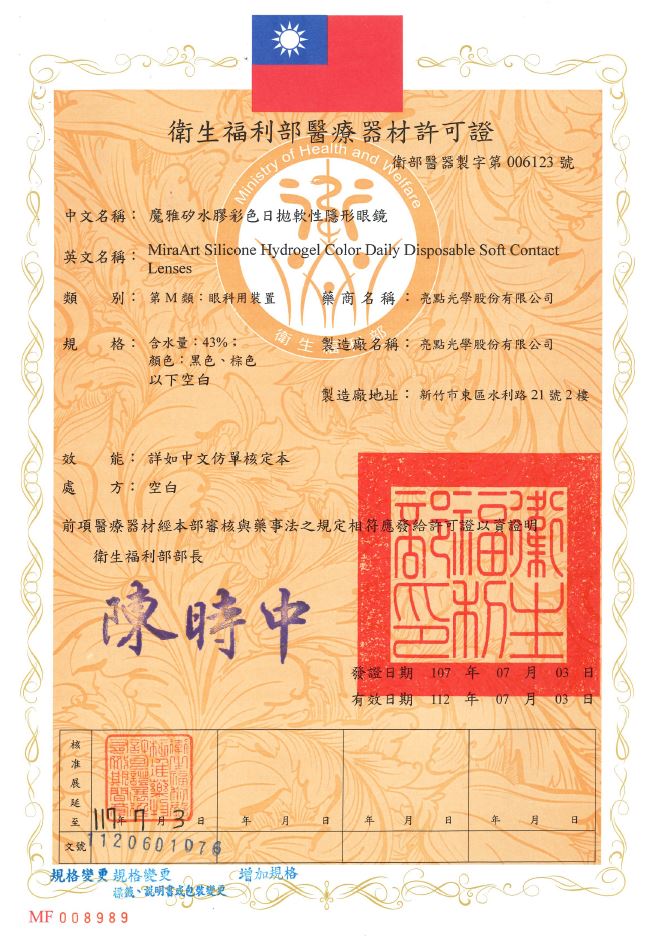 衛生福利部醫療器材許可證
衛部醫器製字第 006123 號
Ministry of Health and Welfare
中文名稱： 魔雅矽水膠彩色日拋軟性隱形眼鏡
英文名稱： MiraArt Silicone Hydrogel Color Daily Disposable Soft Contact
Lenses
類 別： 第 M 類：眼科用裝置 藥商名稱： 亮點光學股份有限公司
規 格： 含水量：43%； 製造廠名稱： 亮點光學股份有限公司
顏色：黑色、棕色
以下空白
衛生福利部
製造廠地址： 新竹市東區水利路 21 號 2 樓
效 能： 詳如中文仿單核定本
處 方： 空白
前項醫療器材經本部審核與藥事法之規定相符應發給許可證以資證明
衛生福利部部長
陳時中
衛生福利部印
發證日期 107 年 07 月 03 日
有效日期 112 年 07 月 03 日
核准展延至 117年 7 月 3 日 年 月 日 年 月 日 年 月 日
文號 1120601076
規格變更 規格變更 增加規格
標籤、說明書或包裝變更
MF 008989